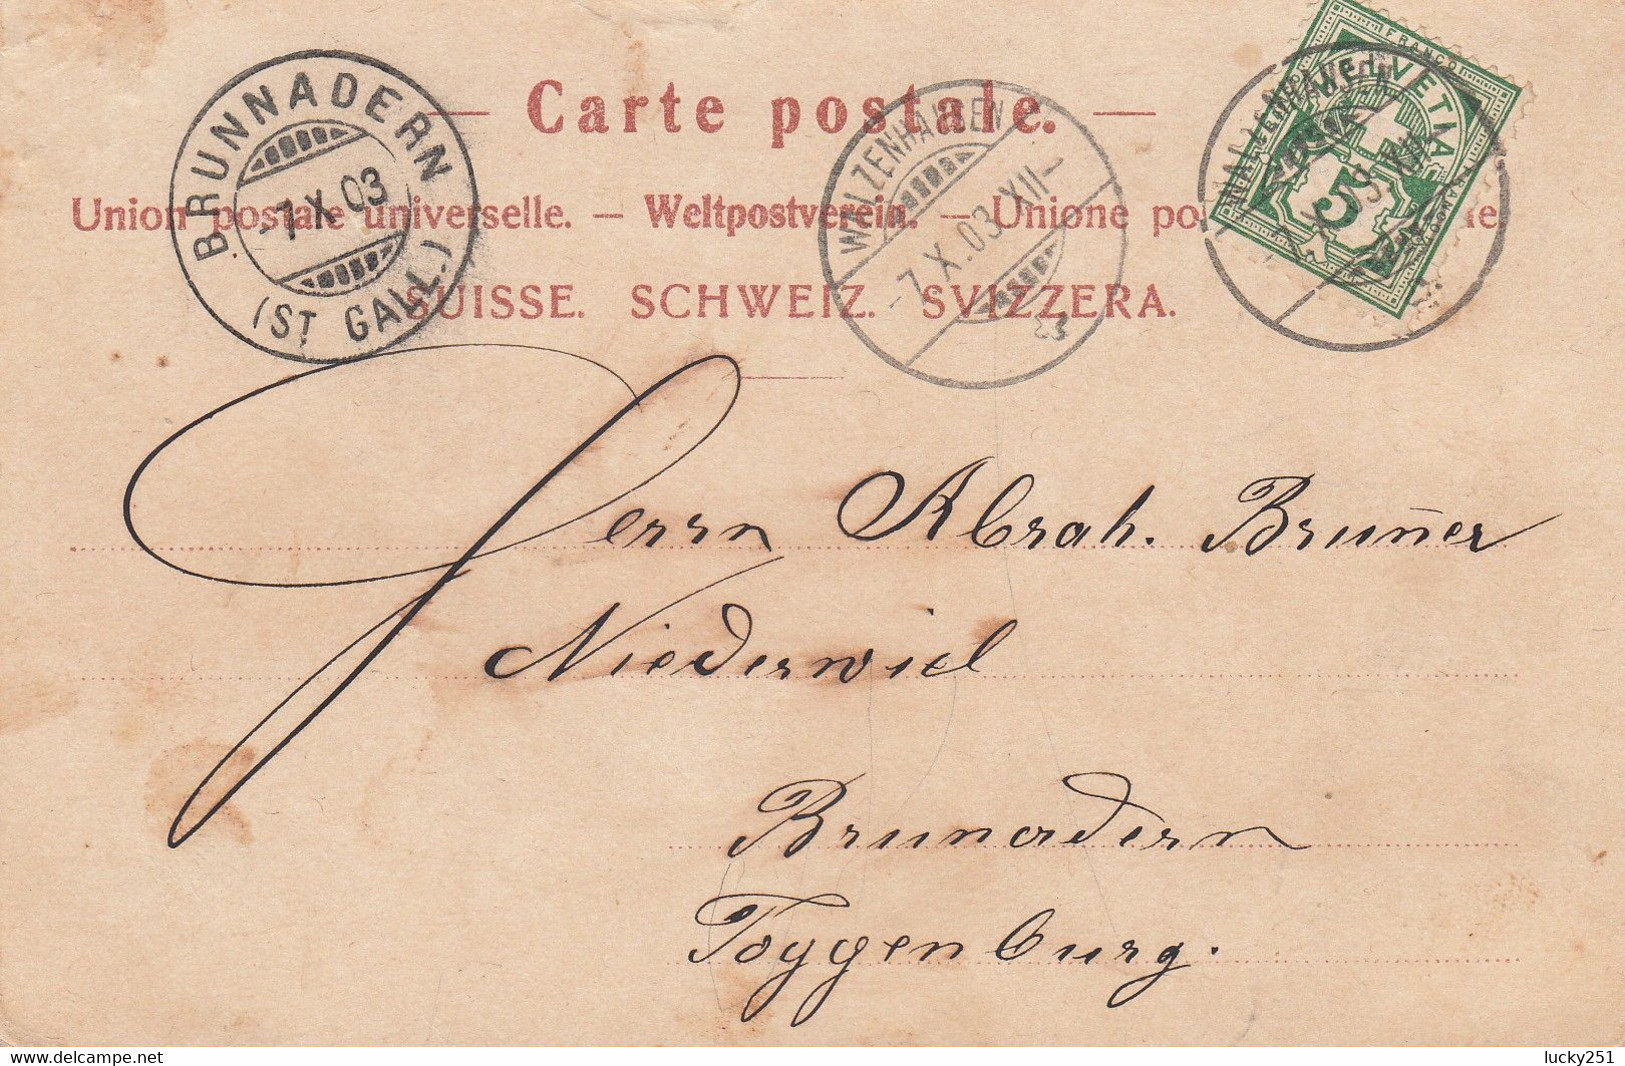 — Carte postale. —
Union postale universelle. — Weltpostverein. — Unione po
SUISSE. SCHWEIZ. SVIZZERA.
BRUNNADERN
-7.X.03
(ST GALL.)
WALZENHAUSEN
-7.X.03.XII-
FRANCO
HELVETIA
5
WALZENHAUSEN
Herrn Abrah. Bruñer
Niederwiel
Brunadern
Toggenburg.
delcampe.net
lucky251